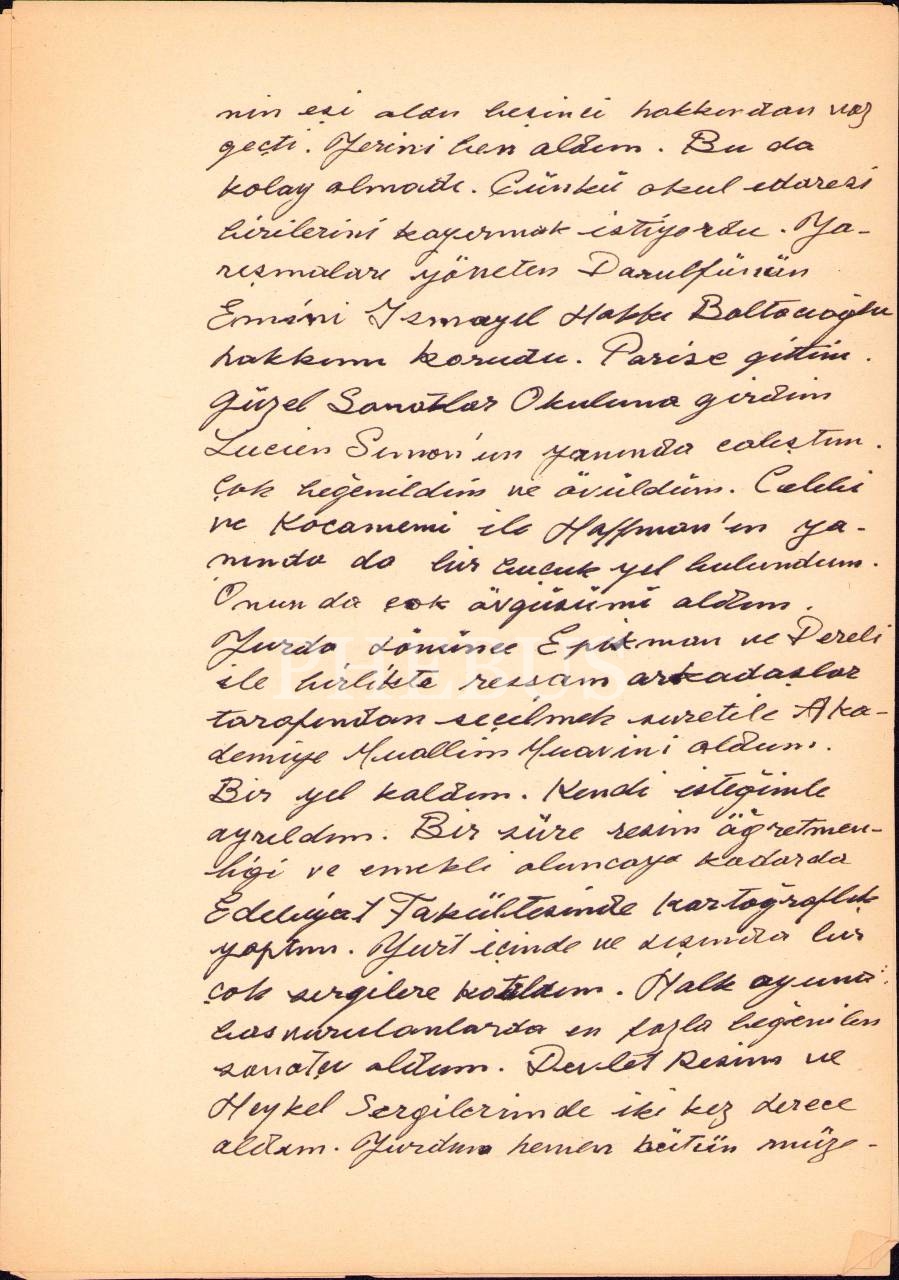 nin eşi olan beşinci hakkından vaz
geçti. Yerini ben aldım. Bu da
kolay olmadı. Çünkü okul idaresi
birilerini kayırmak istiyordu. Ya-
rışmaları yöneten Darulfünün
Emini İsmayıl Hakkı Baltacıoğlu
hakkımı korudu. Parise gittim.
Güzel Sanatlar Okuluna girdim
Lucien Simon'un yanında çalıştım.
Çok beğenildim ve övüldüm. Celebi
ve Kocamemi ile Hoffman'ın ya-
nında da bir buçuk yıl bulundum.
Onun da çok övgüsünü aldım.
Yurda dönünce Epikman ve Dereli
ile birlikte ressam arkadaşlar
tarafından seçilmek suretile Aka-
demiye Muallim Muavini oldum.
Bir yıl kaldım. Kendi isteğimle
ayrıldım. Bir süre resim öğretmen-
liği ve emekli oluncaya kadarda
Edebiyat Fakültesinde kartoğraflık
yaptım. Yurt içinde ve dışında bir
çok sergilere katıldım. Halk oyuna
başvurulanlarda en fazla beğenilen
sanatçı oldum. Devlet Resim ve
Heykel Sergilerinde iki kez derece
aldım. Yurdun hemen bütün müze-
PHEBUS